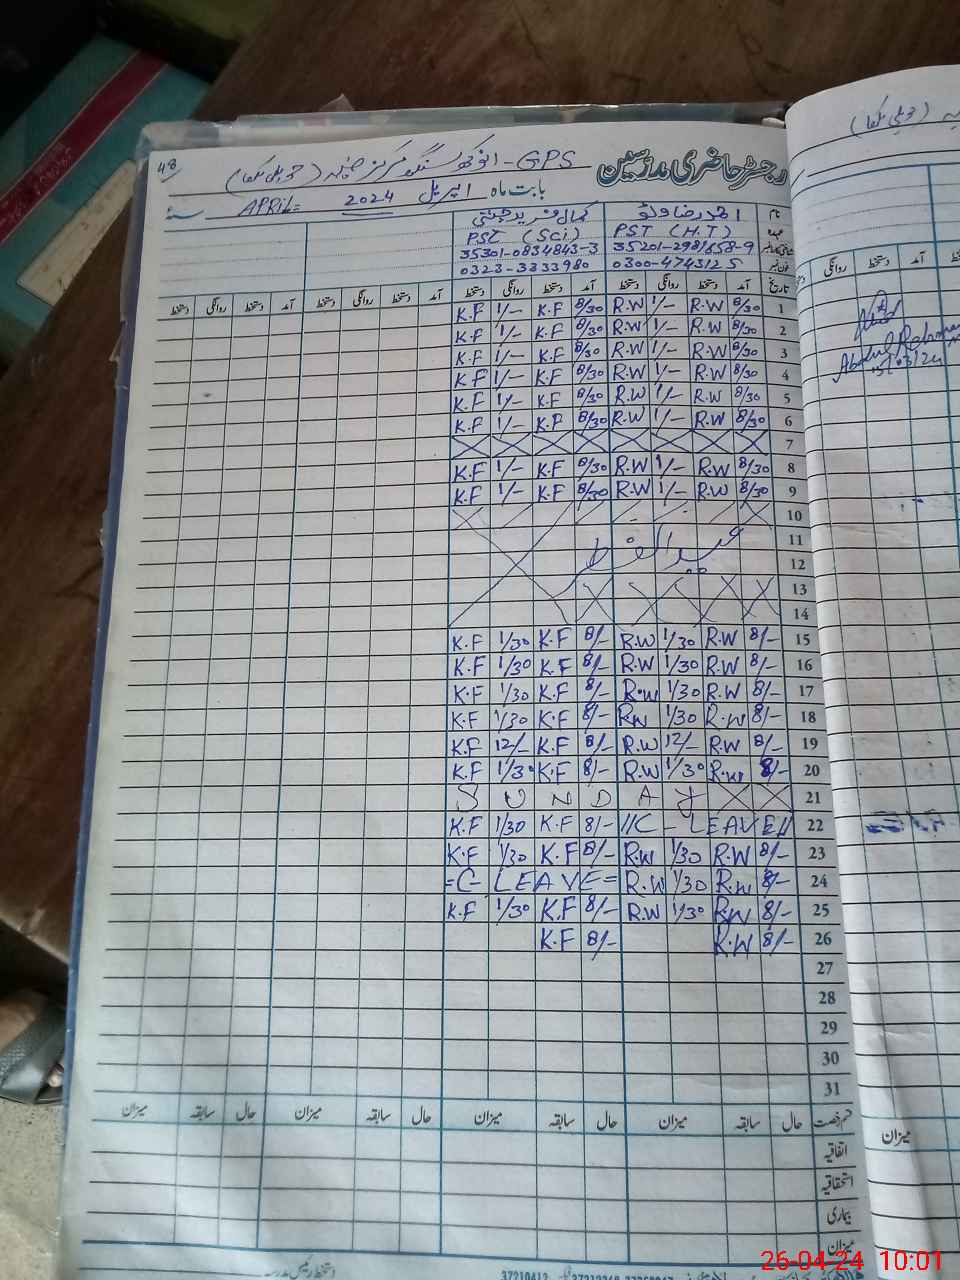 48
رجسٹر حاضری مدرسین
GPS
بابت ماہ اپریل 2024 APRIL=
سنہ
نام احمد رضا وٹو کمال فرید چشتی
عہدہ PST (H.T) PST (Sci)
35201-2981658-9 35301-0834843-3
فون نمبر 0300-4743125 0323-3333980
تاریخ آمد دستخط روانگی دستخط آمد دستخط روانگی دستخط آمد دستخط روانگی دستخط آمد دستخط روانگی دستخط
1 8/30 R.W 1/- R.W 8/30 K.F 1/- K.F
2 8/30 R.W 1/- R.W 8/30 K.F 1/- K.F
3 8/30 R.W 1/- R.W 8/30 K.F 1/- K.F
4 8/30 R.W 1/- R.W 8/30 K.F 1/- K.F
5 8/30 R.W 1/- R.W 8/30 K.F 1/- K.F
6 8/30 R.W 1/- R.W 8/30 K.F 1/- K.F
7
8 8/30 R.W 1/- R.W 8/30 K.F 1/- K.F
9 8/30 R.W 1/- R.W 8/30 K.F 1/- K.F
10
11 عید الفطر
12
13
14
15 8/- R.W 1/30 R.W 8/- K.F 1/30 K.F
16 8/- R.W 1/30 R.W 8/- K.F 1/30 K.F
17 8/- R.W 1/30 R.W 8/- K.F 1/30 K.F
18 8/- R.W 1/30 RW 8/- K.F 1/30 K.F
19 8/- R.W 12/- R.W 8/- K.F 12/- K.F
20 8/- R.W 1/30 R.W 8/- K.F 1/30 K.F
21 SUNDAY
22 //C-LEAVE// 8/- K.F 1/30 K.F
23 8/- R.W 1/30 R.W 8/- K.F 1/30 K.F
24 8/- R.W 1/30 R.W =C-LEAVE=
25 8/- R.W 1/30 R.W 8/- K.F 1/30 K.F
26 8/- R.W 8/- K.F
27
28
29
30
31
قسم رخصت حال سابقہ میزان حال سابقہ میزان حال سابقہ میزان حال سابقہ میزان
اتفاقیہ
استحقاقیہ
بیماری
میزان
دستخط رئیس مدرسہ
37210412
روانگی دستخط آمد دستخط
Abdul Rehman
میزان
26-04-24 10:01